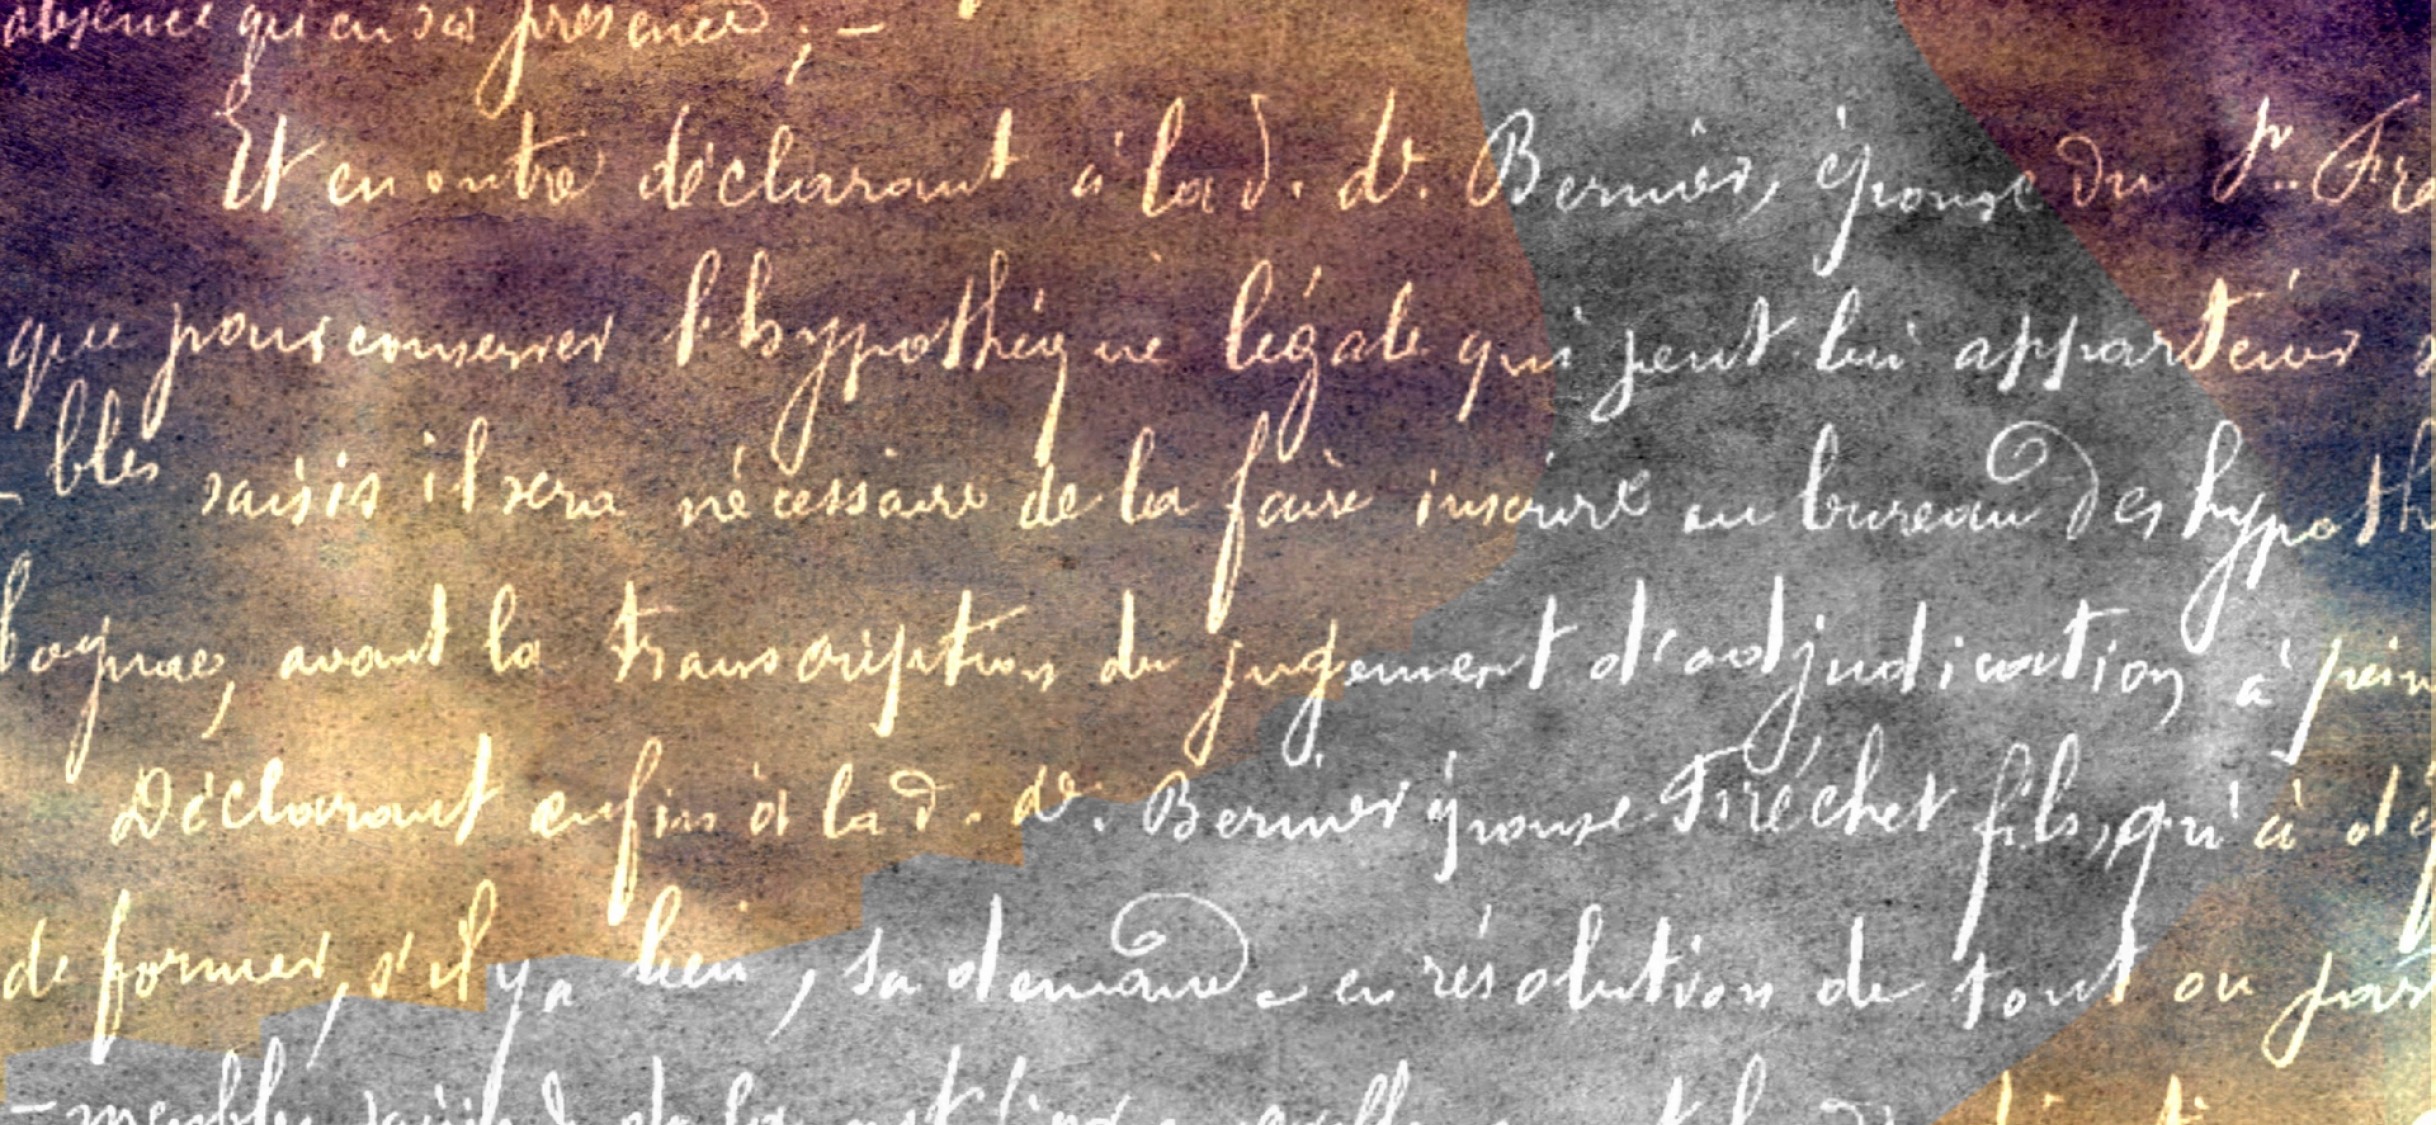 absence qu'en sa présence ; —
Et en outre déclarant à la d. de. Bernier, épouse du Sr. Fré
que pour conserver l'hypothèque légale qui peut lui appartenir s
- bles saisis il sera nécessaire de la faire inscrire au bureau des hypoth
avant la transcription du jugement d'adjudication, à pein
Déclarant enfin à la d. de. Bernier épouse Fréchet fils, qu'à dé
de former, s'il y a lieu, sa demande en résolution de tout ou par
- meubles saisis